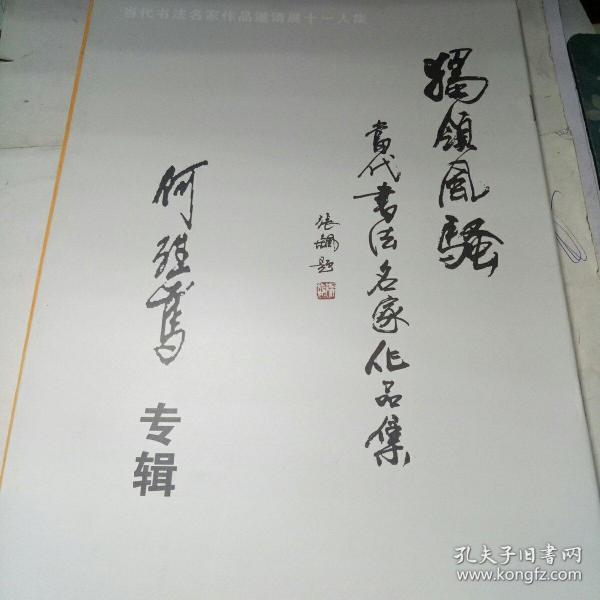 当代书法名家作品邀请展十一人集
獨領風騷
當代書法名家作品集
張飈題
何继篤
专辑
孔夫子旧书网
www.kongfz.com